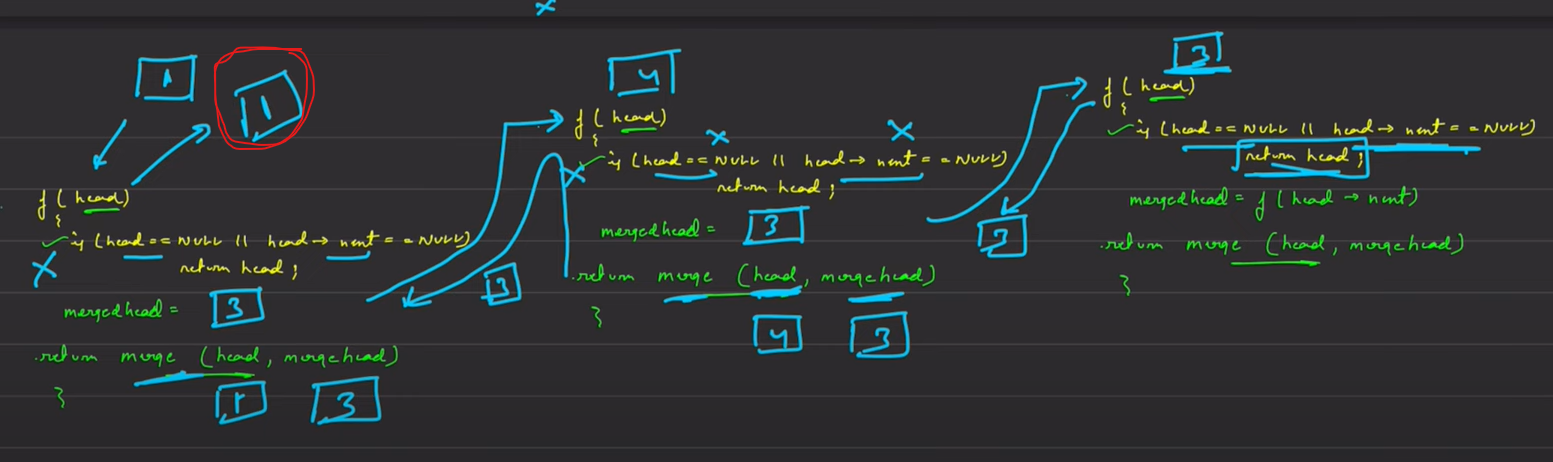 1
1
f (head)
{
if (head == NULL || head → next == NULL)
return head;
mergedhead = 3
return merge (head, mergehead)
1 3
}
3
4
f (head)
{
if (head == NULL || head → next == NULL)
return head;
mergedhead = 3
return merge (head, mergehead)
}
4 3
3
3
f (head)
{
if (head == NULL || head → next == NULL)
return head;
mergedhead = f (head → next)
return merge (head, mergehead)
}